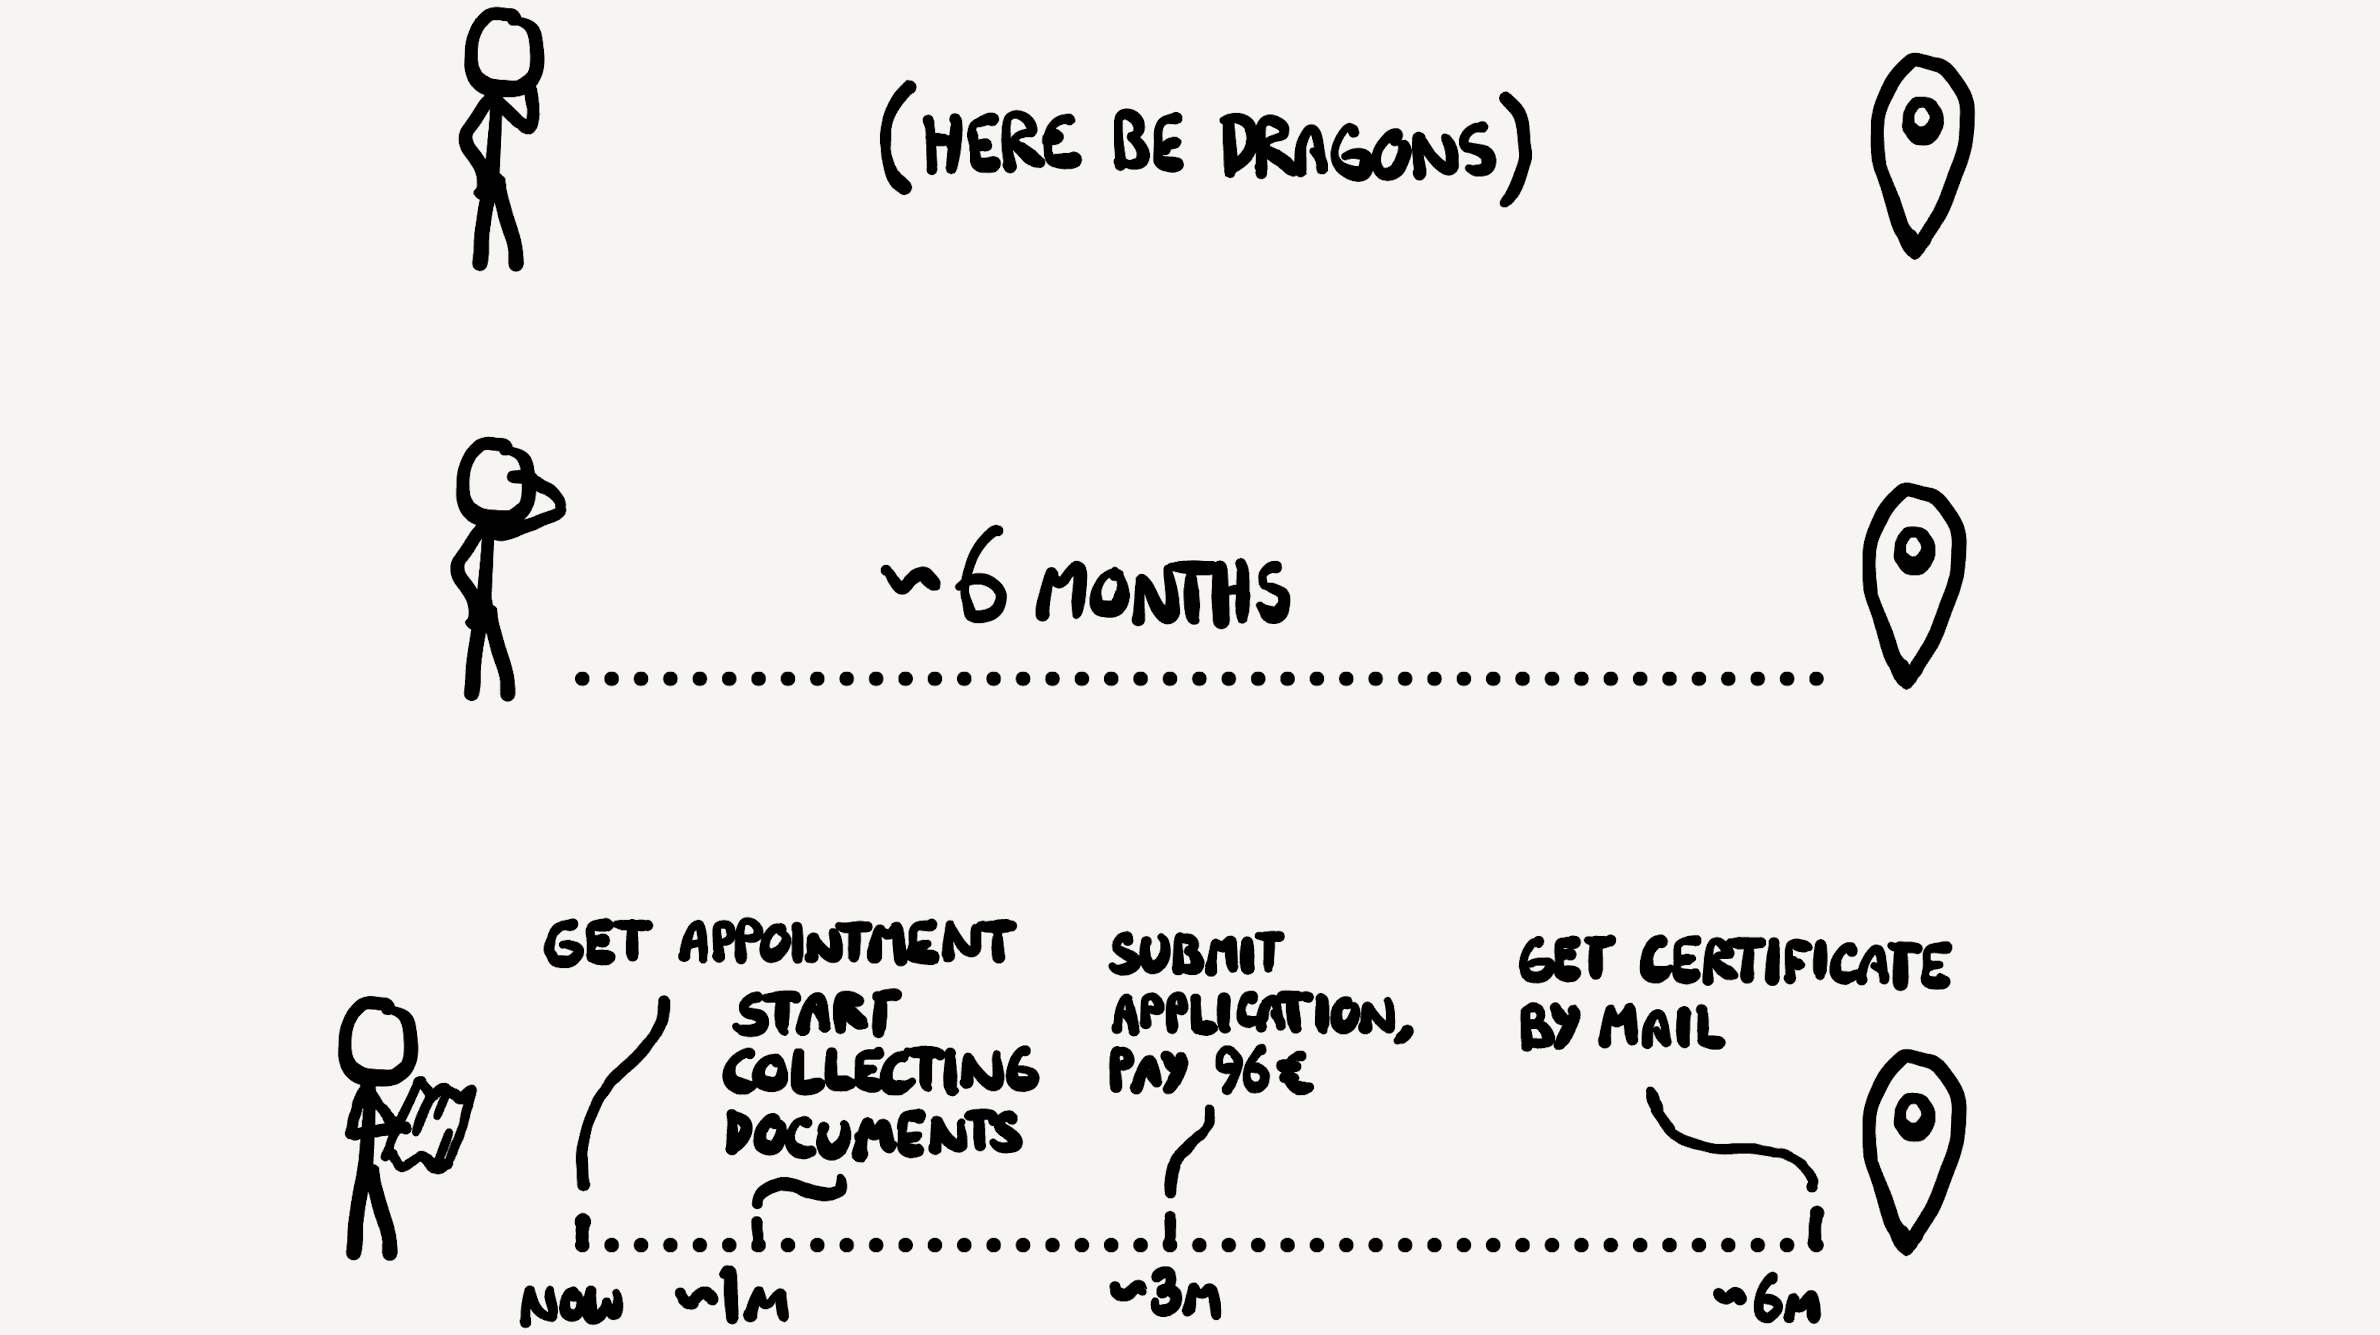 (HERE BE DRAGONS)
~6 MONTHS
GET APPOINTMENT
START
COLLECTING
DOCUMENTS
SUBMIT
APPLICATION,
PAY 96€
GET CERTIFICATE
BY MAIL
NOW
~1M
~3M
~6M